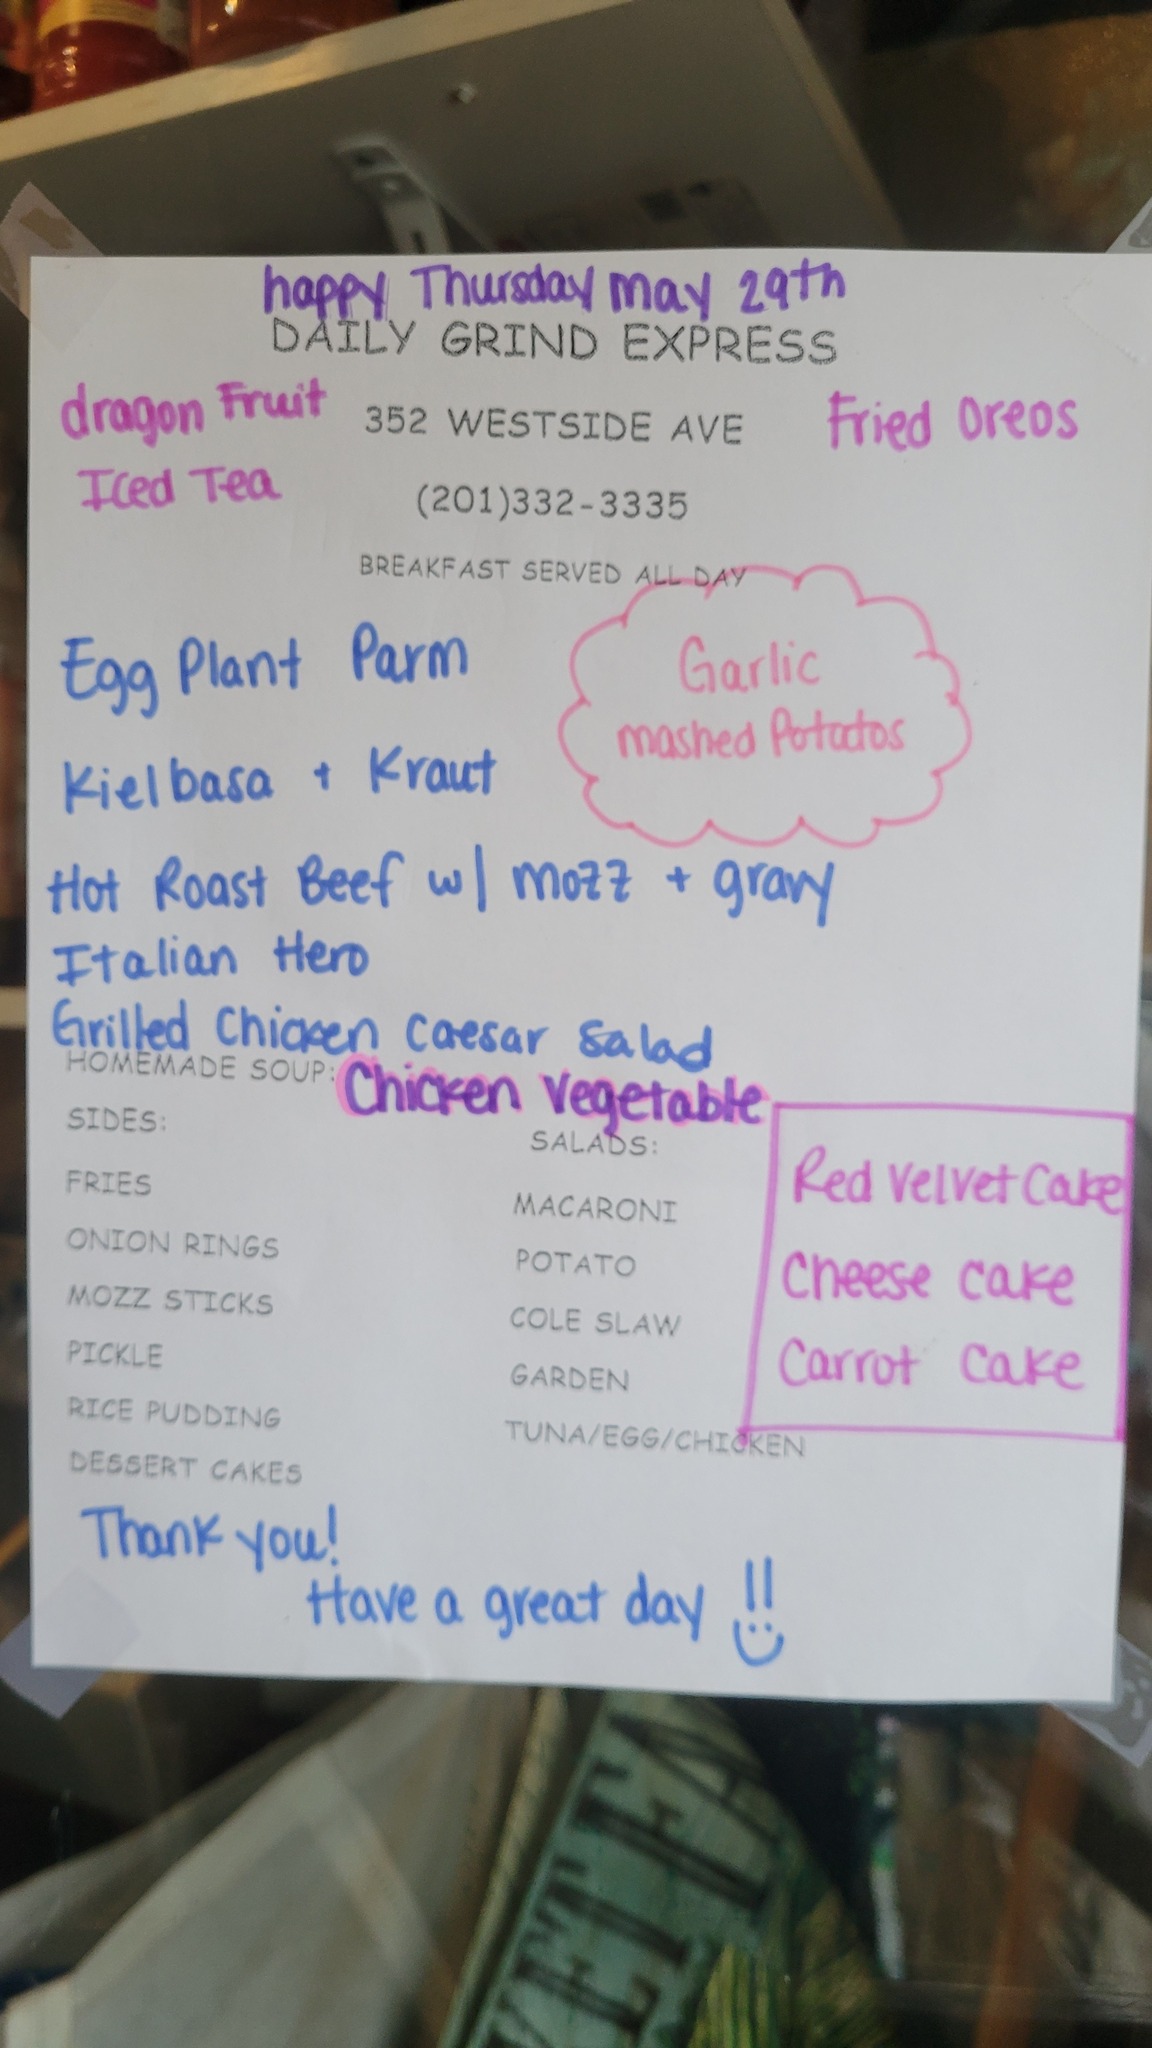 happy Thursday may 29th
DAILY GRIND EXPRESS
dragon Fruit
Iced Tea
352 WESTSIDE AVE
(201)332-3335
Fried Oreos
BREAKFAST SERVED ALL DAY
Egg Plant Parm
Garlic
mashed Potatos
Kielbasa + Kraut
Hot Roast Beef w/ mozz + gravy
Italian Hero
Grilled Chicken Caesar Salad
HOMEMADE SOUP: Chicken Vegetable
SIDES:
FRIES
ONION RINGS
MOZZ STICKS
PICKLE
RICE PUDDING
DESSERT CAKES
SALADS:
MACARONI
POTATO
COLE SLAW
GARDEN
TUNA/EGG/CHICKEN
Red Velvet Cake
Cheese Cake
Carrot Cake
Thank you!
Have a great day !!